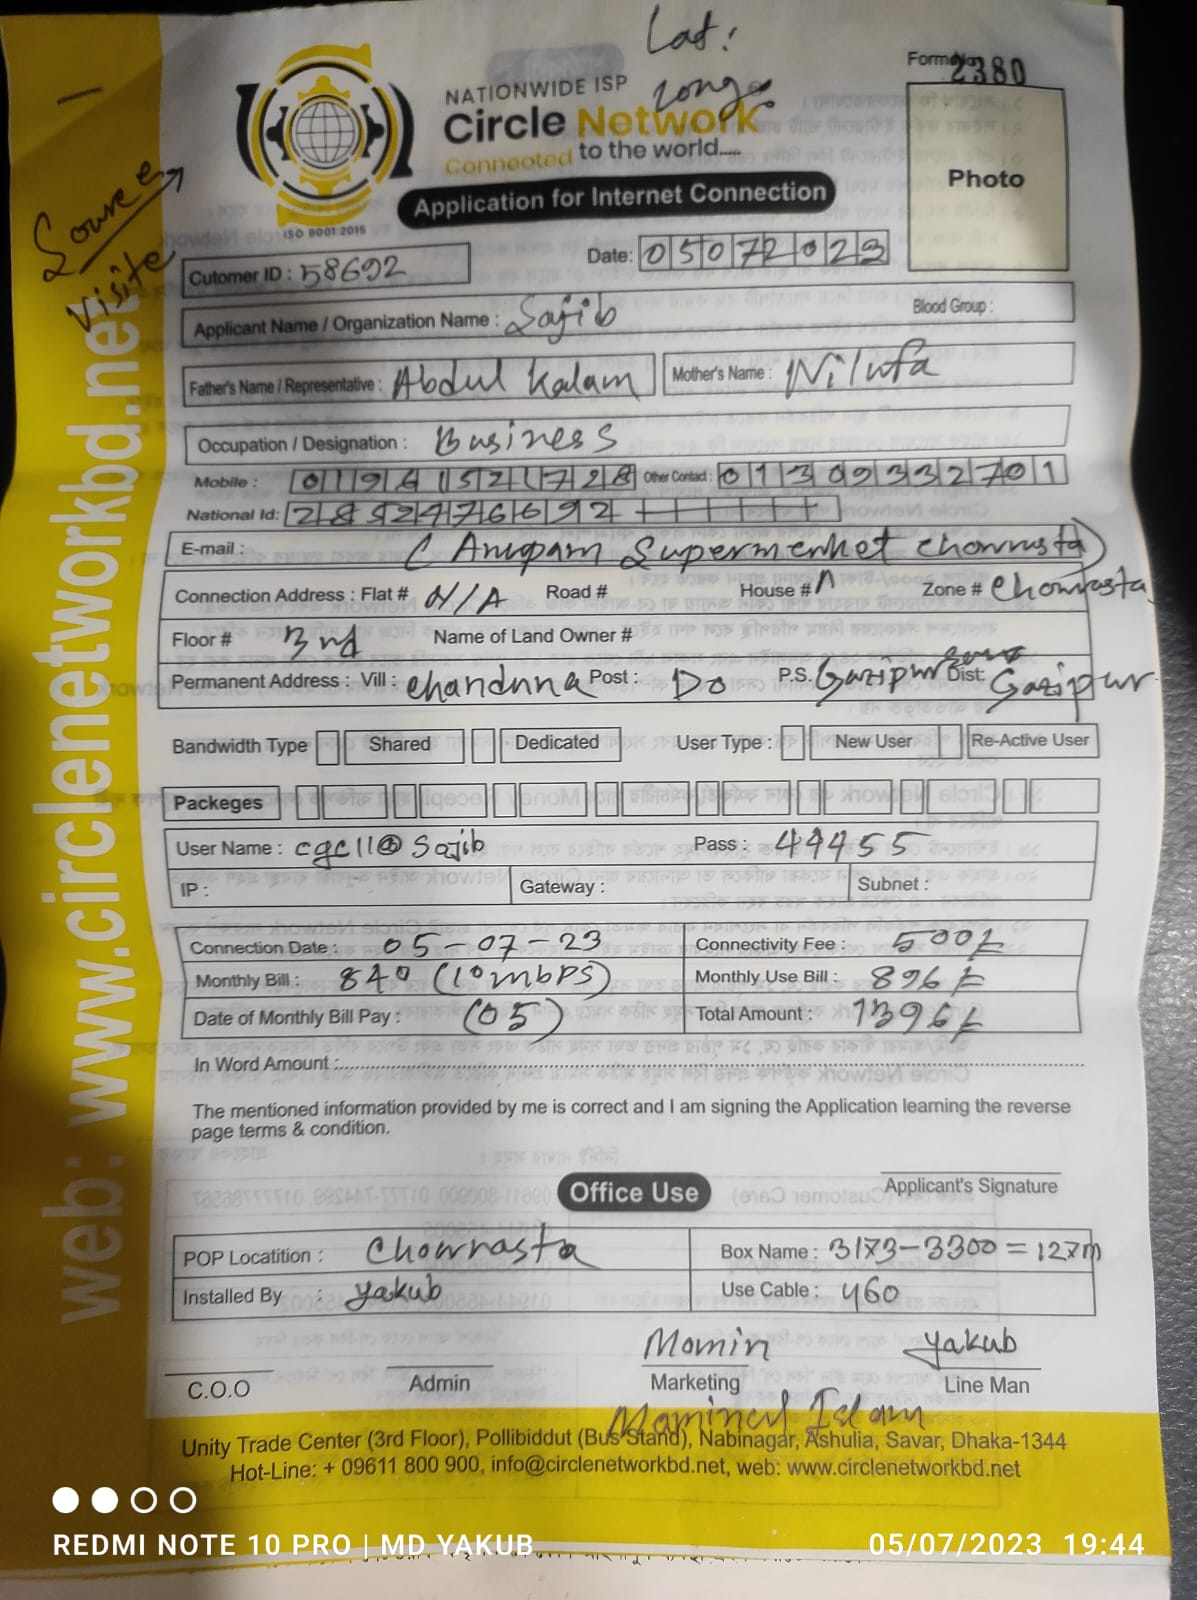 Lat:
Form No 2380
NATIONWIDE ISP
Long:
Circle Network
Connected to the world....
Photo
Application for Internet Connection
ISO 9001:2015
Source
visite
Cutomer ID : 58692 Date: 05072023
Applicant Name / Organization Name : Sajib Blood Group :
Father's Name / Representative : Abdul Kalam Mother's Name : Nilufa
Occupation / Designation : Business
Mobile : 01961521728 Other Contact : 01309332701
National Id: 2852476692
E-mail : (Anupam Supermerket chowrasta)
Connection Address : Flat # N/A Road # House # A Zone # chowrasta
Floor # 3rd Name of Land Owner #
Permanent Address : Vill : chandnna Post : Do P.S. Gazipur Dist: Gazipur
Bandwidth Type Shared Dedicated User Type : New User Re-Active User
Packeges
User Name : cgc11@sajib Pass : 44455
IP : Gateway : Subnet :
Connection Date : 05-07-23 Connectivity Fee : 500/-
Monthly Bill : 840 (10mbps) Monthly Use Bill : 896/-
Date of Monthly Bill Pay : (05) Total Amount : 1396/-
In Word Amount :
The mentioned information provided by me is correct and I am signing the Application learning the reverse
page terms & condition.
Applicant's Signature
Office Use
POP Locatition : Chowrasta Box Name : 3173-3300=127m
Installed By : yakub Use Cable : 460
Momin yakub
C.O.O Admin Marketing Line Man
Mominul Islam
Unity Trade Center (3rd Floor), Pollibiddut (Bus Stand), Nabinagar, Ashulia, Savar, Dhaka-1344
Hot-Line: + 09611 800 900, info@circlenetworkbd.net, web: www.circlenetworkbd.net
web: www.circlenetworkbd.net
REDMI NOTE 10 PRO | MD YAKUB 05/07/2023 19:44